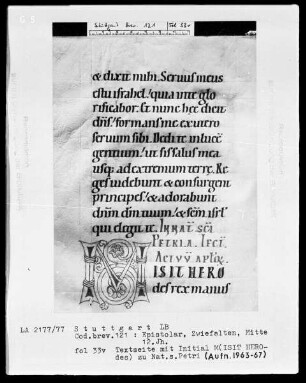 Stuttgart Brev. 121 Fol 33v
& dixit mihi. Seruus meus
es tu israhel. quia in te glo
rificabor. Et nunc hęc dicit
dns. formans me ex utero
seruum sibi. Dedi te in lucē
gentium. ut sis salus mea
usq; ad extremum terrę. Re
ges uidebunt & consurgent
principes. & adorabunt
dnm dm tuum. & scm isrl
qui elegit te.
PETRI
ISIT HERO
des rex manus
LA 2177/77 Stuttgart LB
Cod.brev.121 : Epistolar, Zwiefalten, Mitte
12.Jh.
fol 33v Textseite mit Initial M(ISIT HERO-
des) zu Nat.s.Petri (Aufn.1963-67)